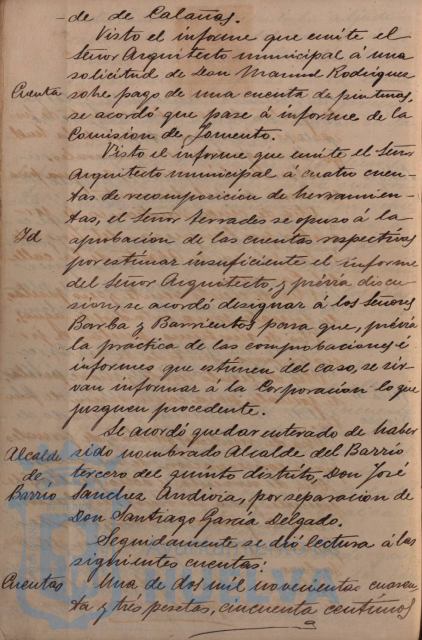 de de Calañas.
Visto el informe que emite el
Señor Arquitecto municipal á una
solicitud de Don Manuel Rodriguez
Cuenta
sobre pago de una cuenta de pinturas,
se acordó que pase á informe de la
Comision de Fomento.
Visto el informe que emite el Señor
Arquitecto municipal á cuatro cuen-
tas de recomposicion de herramien-
tas, el Señor Terrades se opuso á la
Id
aprobacion de las cuentas respectivas
por estimar insuficiente el informe
del Señor Arquitecto, y prévia discu-
sion, se acordó designar á los Señores
Barba y Barrientos para que, prévia
la práctica de las comprobaciones é
informes que estimen del caso, se sir-
van informar á la Corporacion lo que
juzguen procedente.
Se acordó quedar enterado de haber
Alcalde
sido nombrado Alcalde del Barrio
de
tercero del quinto distrito, Don José
Barrio
Sanchez Andivia, por separacion de
Don Santiago García Delgado.
Seguidamente se dió lectura á las
siguientes cuentas:
Cuentas
Una de dos mil novecientas cuaren-
ta y tres pesetas, cincuenta centimos